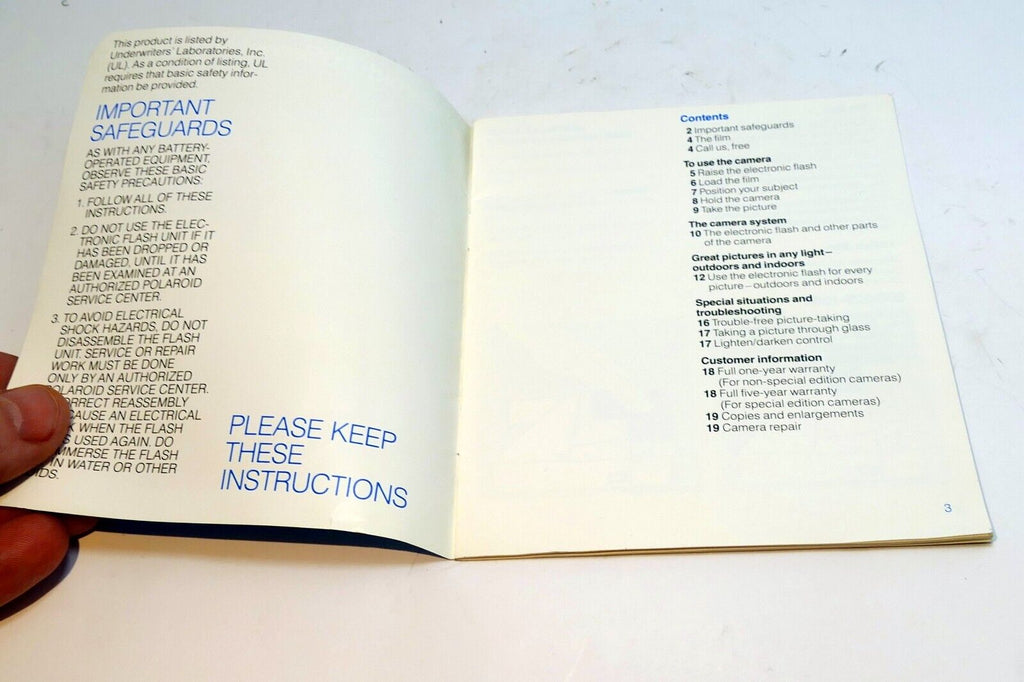 This product is listed by
Underwriters' Laboratories, Inc.
(UL). As a condition of listing, UL
requires that basic safety infor-
mation be provided.
IMPORTANT
SAFEGUARDS
AS WITH ANY BATTERY-
OPERATED EQUIPMENT,
OBSERVE THESE BASIC
SAFETY PRECAUTIONS:
1. FOLLOW ALL OF THESE
INSTRUCTIONS.
2. DO NOT USE THE ELEC-
TRONIC FLASH UNIT IF IT
HAS BEEN DROPPED OR
DAMAGED, UNTIL IT HAS
BEEN EXAMINED AT AN
AUTHORIZED POLAROID
SERVICE CENTER.
3. TO AVOID ELECTRICAL
SHOCK HAZARDS, DO NOT
DISASSEMBLE THE FLASH
UNIT. SERVICE OR REPAIR
WORK MUST BE DONE
ONLY BY AN AUTHORIZED
POLAROID SERVICE CENTER.
ORRECT REASSEMBLY
CAUSE AN ELECTRICAL
K WHEN THE FLASH
S USED AGAIN. DO
MMERSE THE FLASH
IN WATER OR OTHER
IDS.
PLEASE KEEP
THESE
INSTRUCTIONS
Contents
2 Important safeguards
4 The film
4 Call us, free
To use the camera
5 Raise the electronic flash
6 Load the film
7 Position your subject
8 Hold the camera
9 Take the picture
The camera system
10 The electronic flash and other parts
of the camera
Great pictures in any light—
outdoors and indoors
12 Use the electronic flash for every
picture—outdoors and indoors
Special situations and
troubleshooting
16 Trouble-free picture-taking
17 Taking a picture through glass
17 Lighten/darken control
Customer information
18 Full one-year warranty
(For non-special edition cameras)
18 Full five-year warranty
(For special edition cameras)
19 Copies and enlargements
19 Camera repair
3